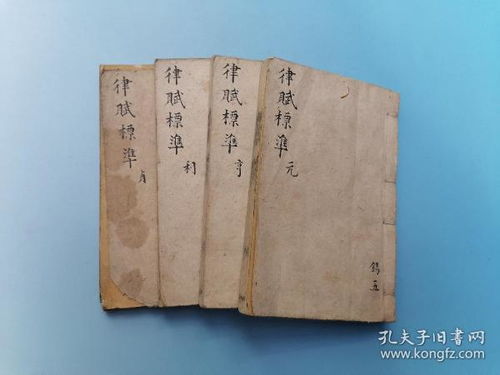 律賦標準 元
律賦標準 亨
律賦標準 利
律賦標準 貞
孔夫子旧书网
www.kongfz.com